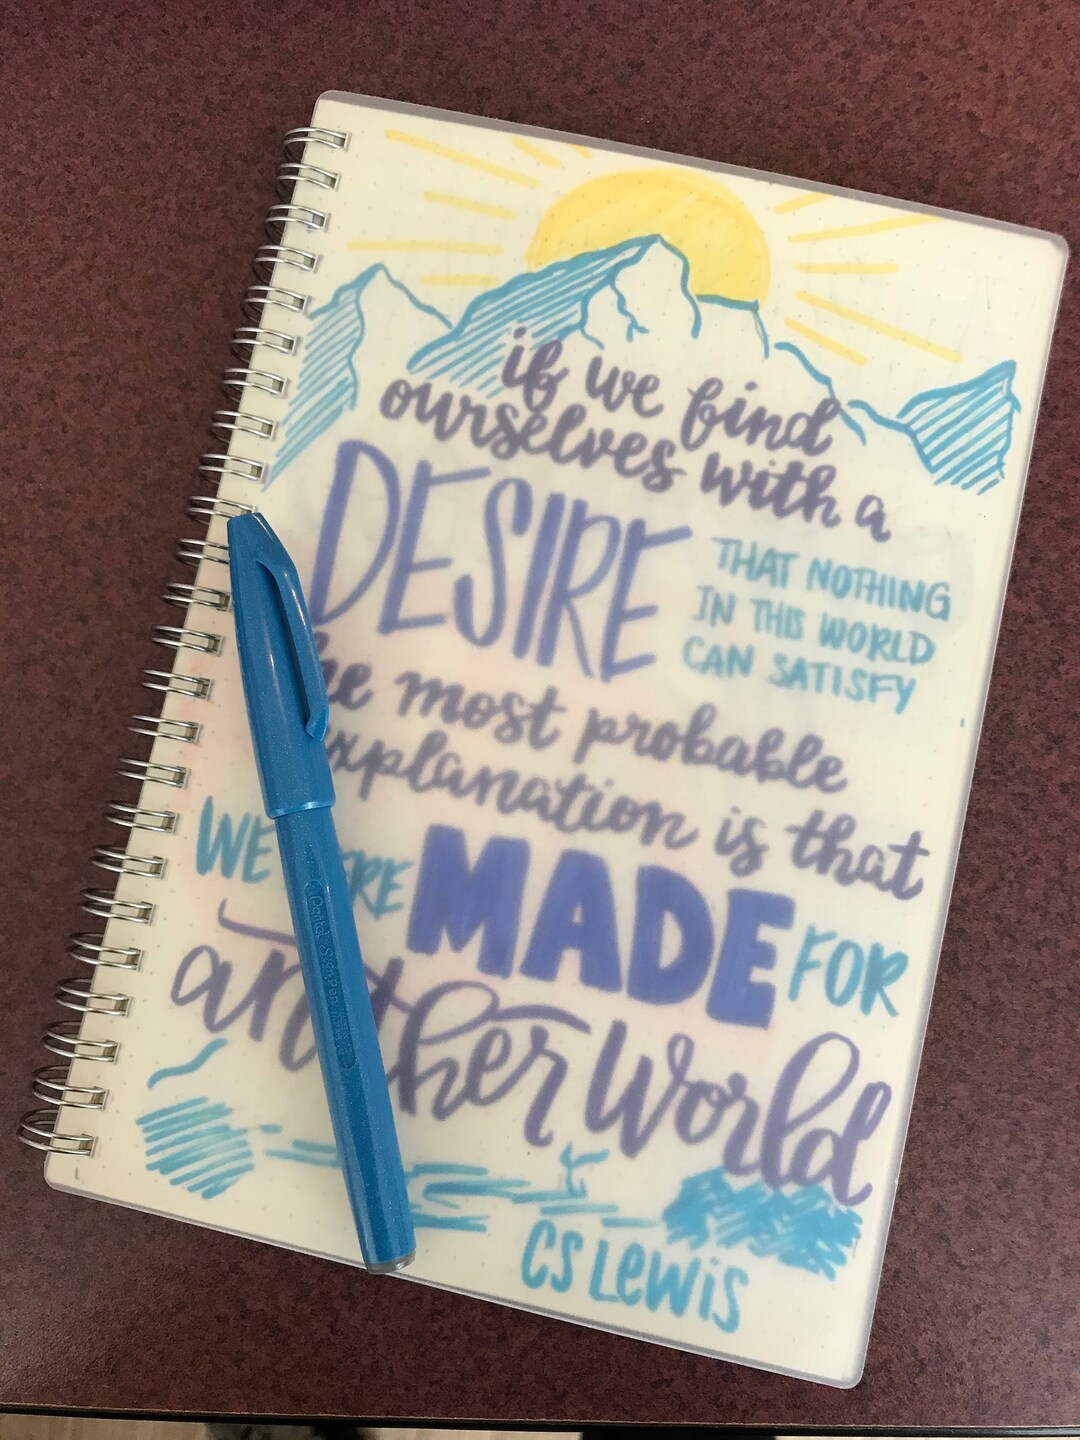 if we find
ourselves with a
DESIRE
THAT NOTHING
IN THIS WORLD
CAN SATISFY
the most probable
explanation is that
WE MADE FOR
another World
CS LEWIS
Pentel Sign Pen